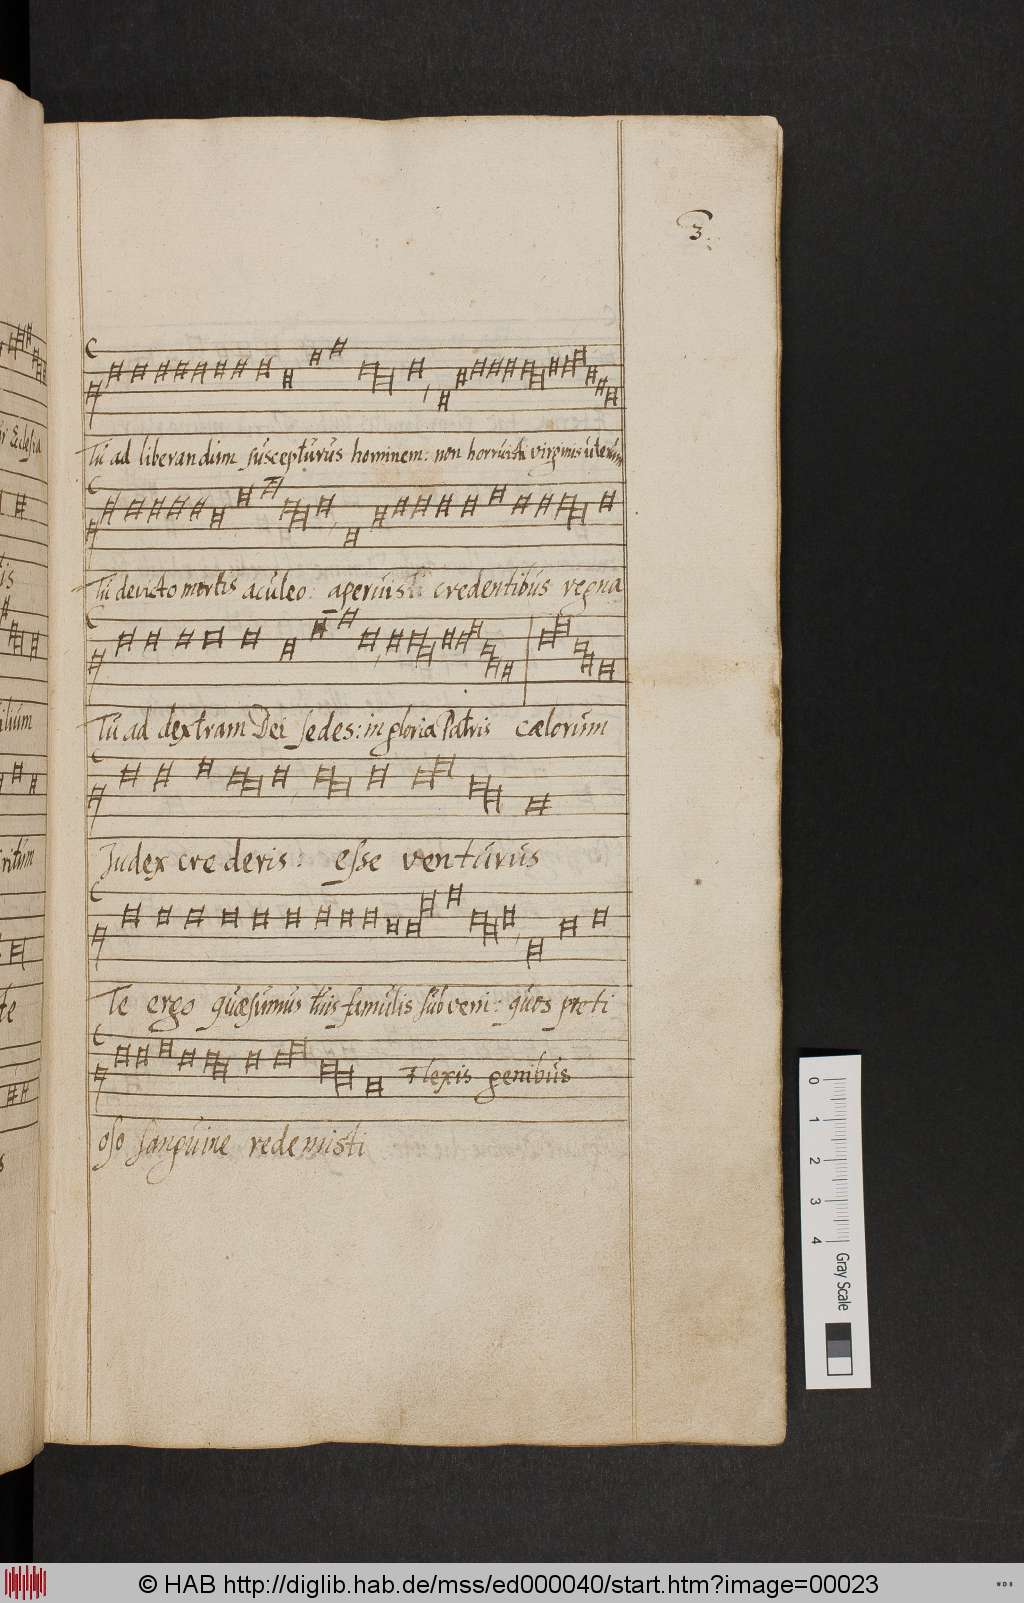 3.
Tu ad liberandum suscepturus hominem: non horruisti virginis uterum
Tu devicto mortis aculeo: aperuisti credentibus regna
Tu ad dextram Dei sedes: in gloria Patris cælorum
Judex crederis: esse venturus
Te ergo quæsumus tuis famulis subveni: quos preti
Flexis genibus
oso sanguine redemisti
Ecclesia
tis
ilium
ritum
te
s
0 1 2 3 4 Gray Scale
© HAB http://diglib.hab.de/mss/ed000040/start.htm?image=00023